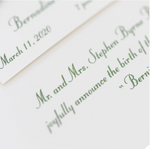 Bernadette
March 11, 2020
Mr. and Mrs. Stephen Byrne
joyfully announce the birth of th
"Berni